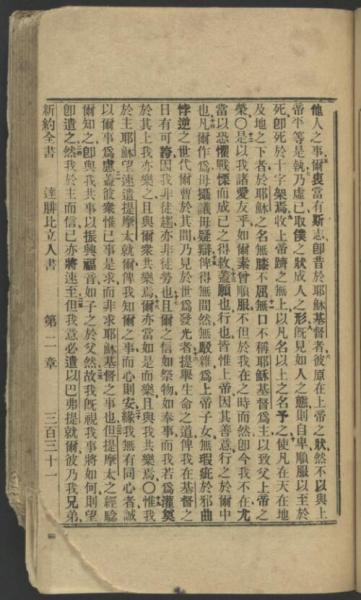 他人之事爾衷當有斯志卽昔於耶穌基督者彼原在上帝之狀然不以與上
帝平等是執乃虛己取僕之狀成人之形旣見如人之態則自卑順服以至於
死卽死於十字架焉故上帝躋之無上以凡名以上之名予之使凡在天在地
及地之下者於耶穌之名無膝不屈無口不稱耶穌基督爲主以致父上帝之
榮〇是以我諸愛友乎如爾素曾順服不但於我在之時而然卽今我不在尤
當以恐懼戰慄而成己之得救蓋願也行也皆惟上帝因其善意行之於爾中
也凡爾作爲毋攜議毋疑辯俾得無間然無敝雜爲上帝子女無瑕疵於邪曲
悖逆之世代爾曹於其間乃見於世爲發光者提舉生命之道俾我在基督之
日有可誇因我非徒趨亦非徒勞也且爾之信如祭物如奉事而我若爲灌奠
於其上我亦樂之且與爾衆共樂焉爾亦當如是而樂且與我共樂焉〇惟我
於主耶穌望速遣提摩太就爾俾我知爾之事而心則安緣我無有同心者誠
以爾事爲慮蓋彼衆惟己事是求而非求耶穌基督之事也但提摩太之經驗
爾知之卽與我共事以振興福音如子之於父然故我旣視我事將如何則望
卽遣之然我於主而信己亦將速至但我意必遣以巴弗提就爾彼乃我兄弟
新約全書 達腓比立人書 第二章 三百三十一